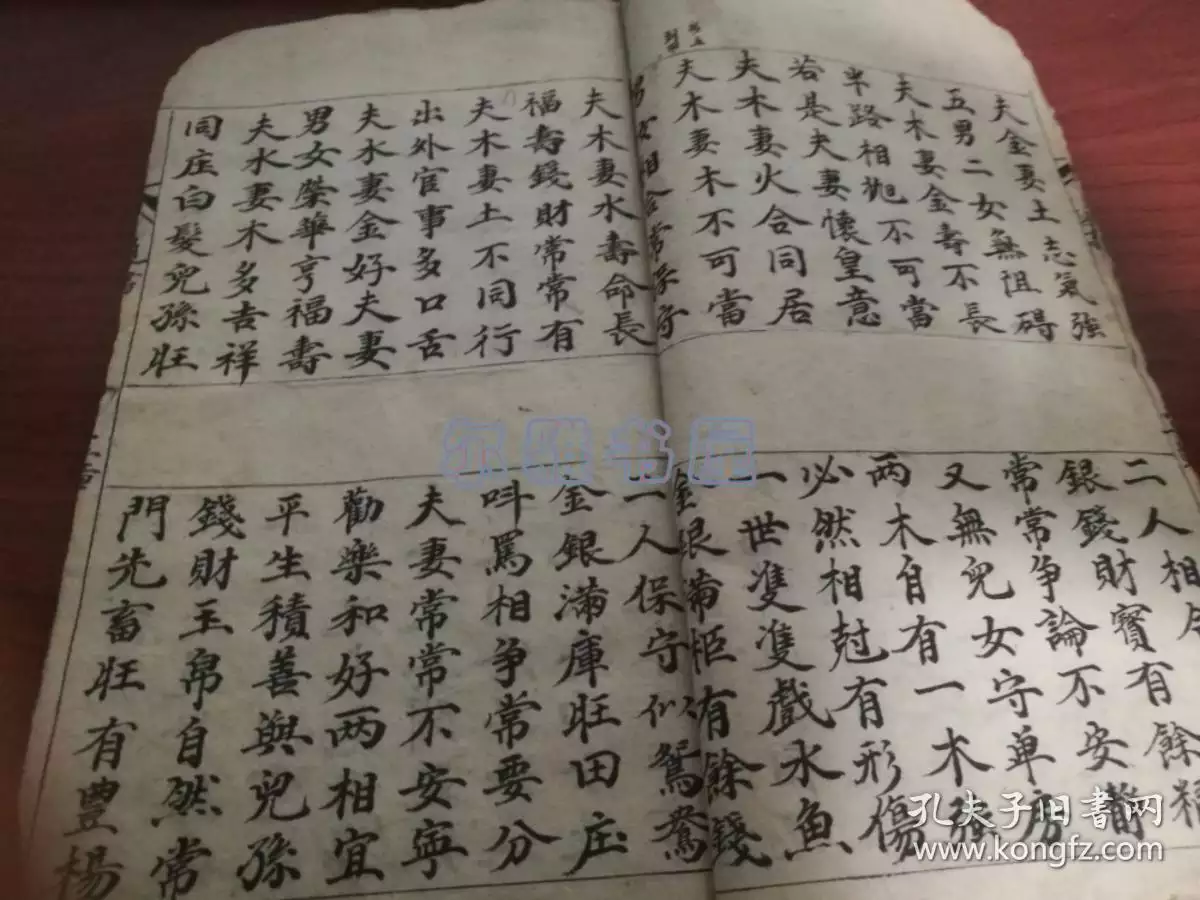 夫金妻土志氣強
五男二女無阻碍
夫木妻金壽不長
半路相尅不可當
若是夫妻懷皇意
夫木妻火合同居
夫木妻木不可當
夫木妻水壽命長
福壽錢財常常有
夫木妻土不同行
出外官事多口舌
夫水妻金好夫妻
男女榮華亨福壽
夫水妻木多吉祥
同庄白髮兒孫旺
二人相
銀錢財寳有餘糧
常常争論不安静
又無兒女守单房
两木自有一木強
必然相尅有形傷
一世隻隻戲水魚
金銀滿柜有餘錢
二人保守似鴛鴦
金銀滿庫旺田庄
呌罵相争常要分
夫妻常常不安寧
勸樂和好两相宜
平生積善與兒孫
錢財玉帛自然常
門先畜旺有豐楊
尔雅书屋
孔夫子旧书网
www.kongfz.com